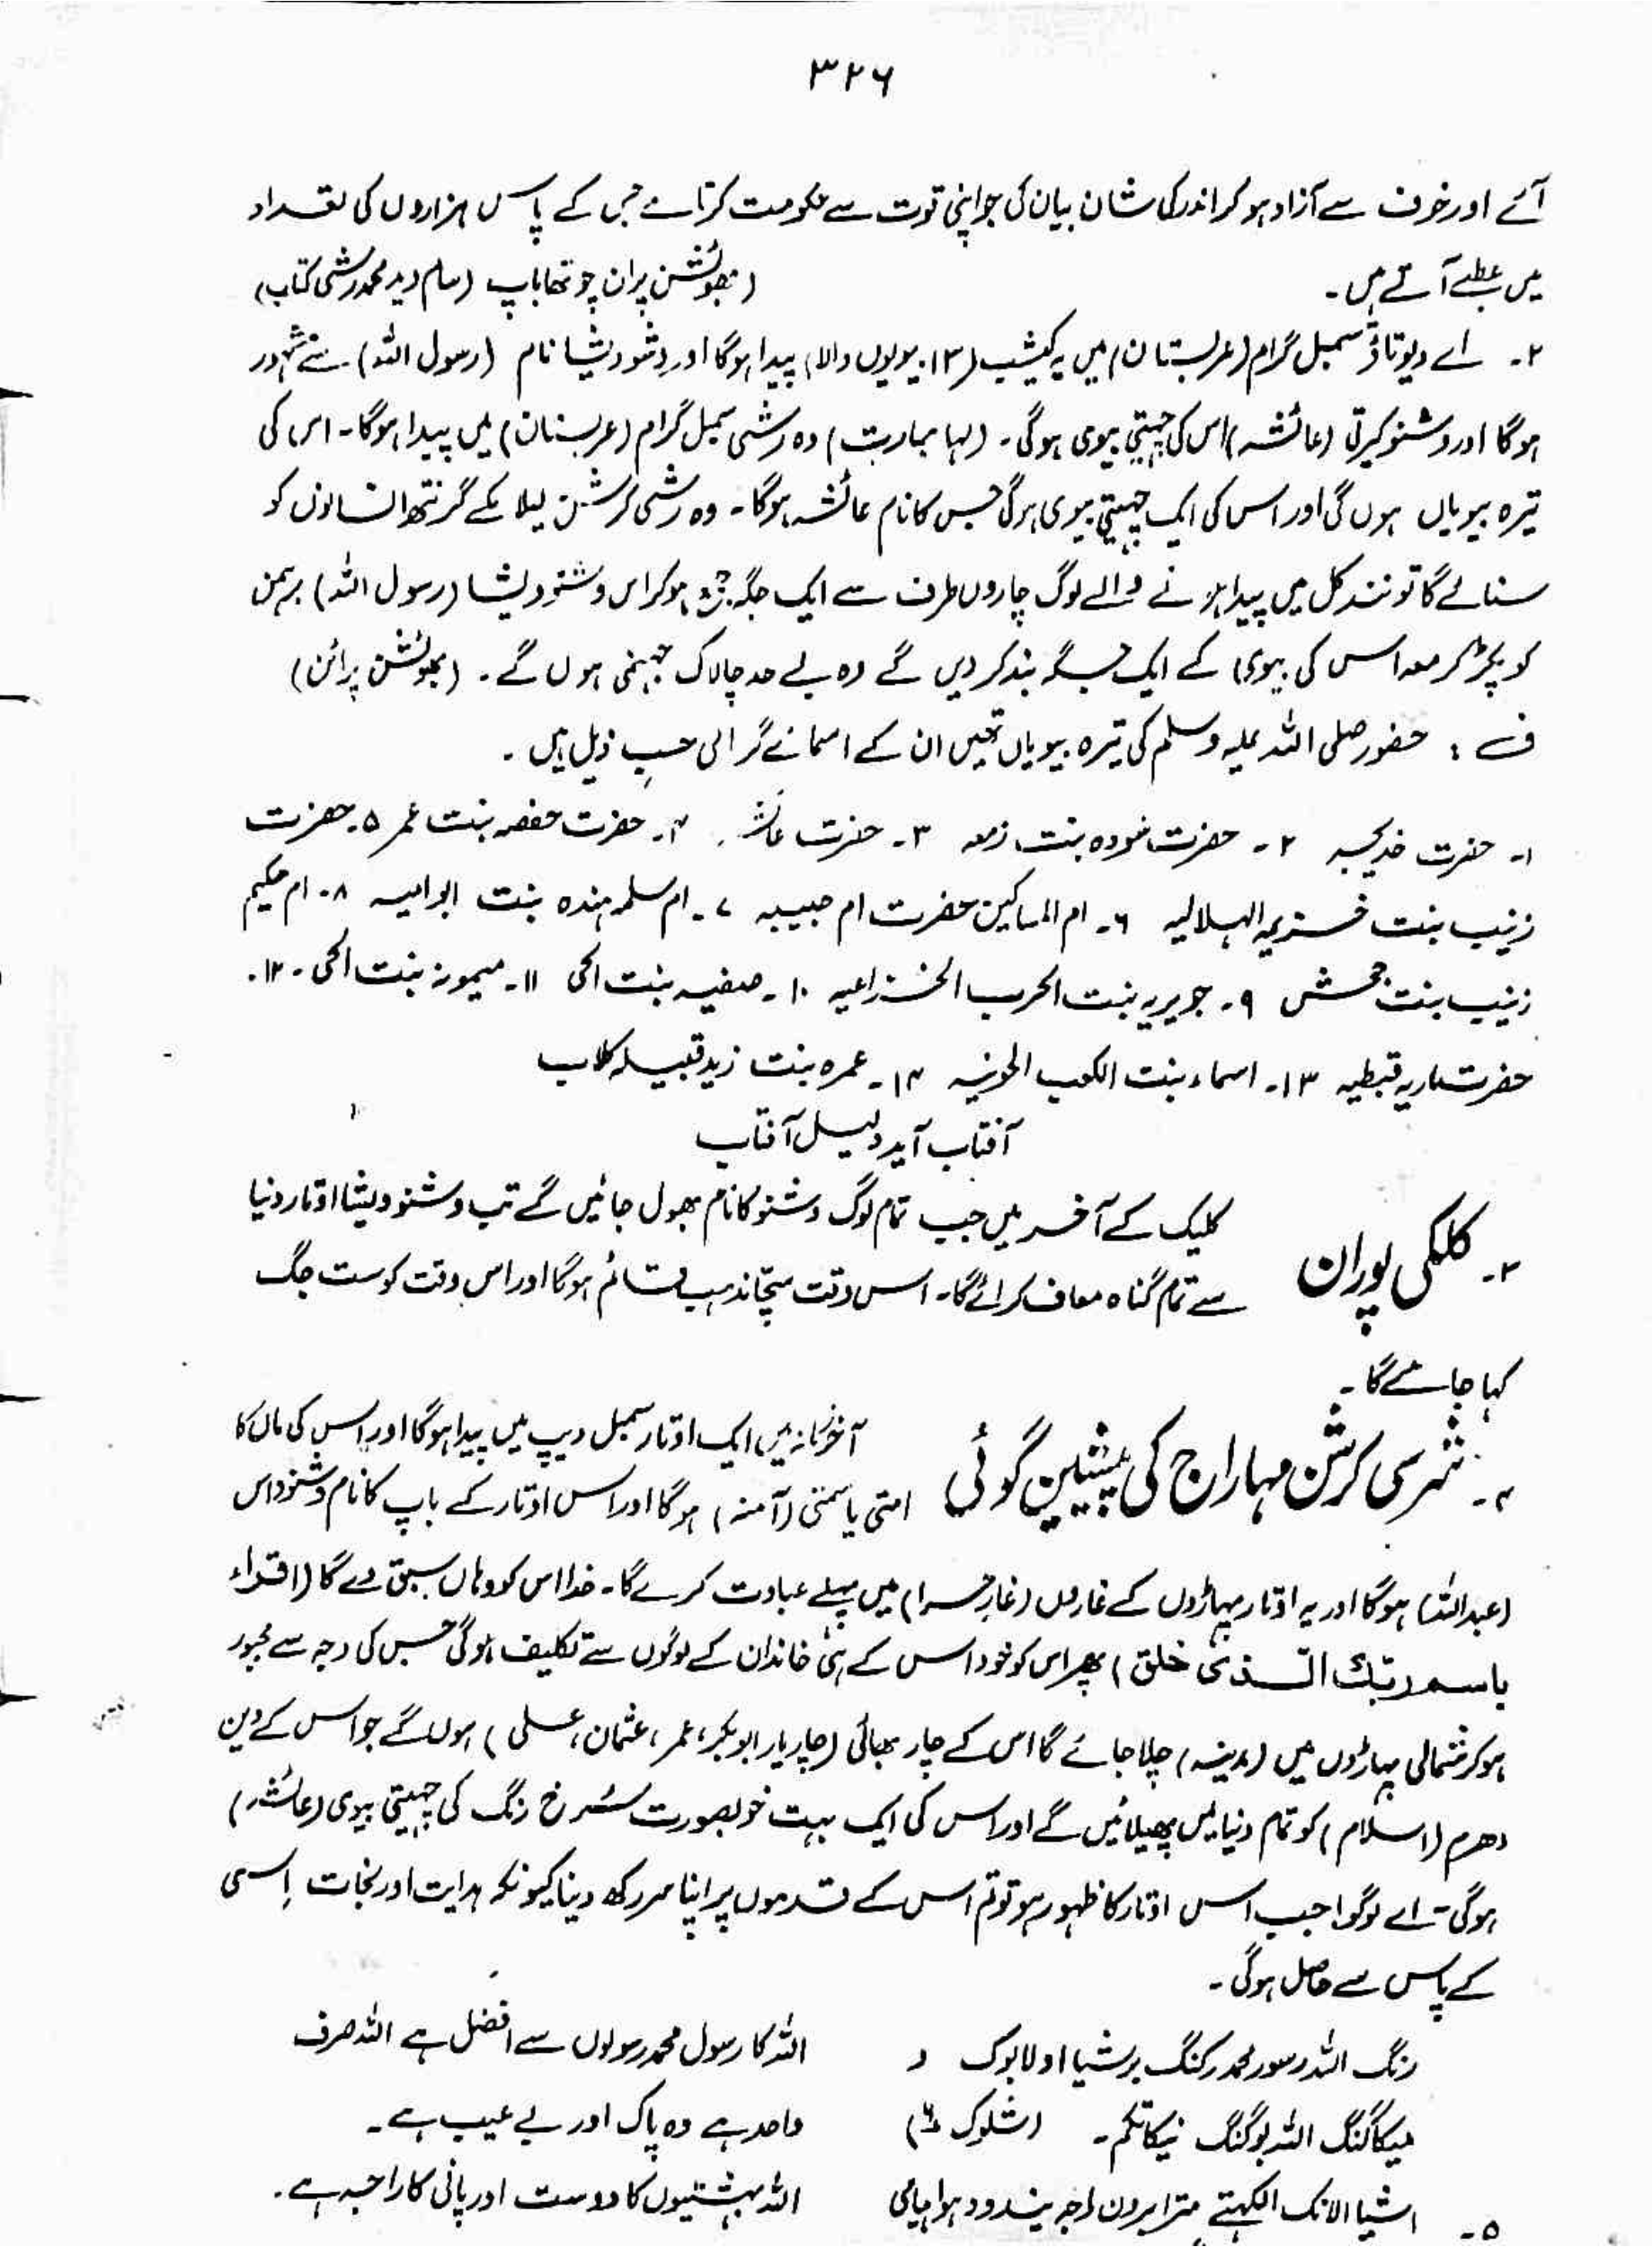 ۳۲۶
آئے اور خوف سے آزاد ہو کر اندر کی شان بیان کی جو اپنی قوت سے حکومت کرتا ہے جس کے پاس ہزاروں کی تعداد
میں عطیے آتے ہیں۔ (بھوئشن پران چوتھا باپ (سام وید محمد رشی کتاب)
۲۔ اے دیوتاؤ سمبل گرام (عربستان) میں یہ کیشب (۱۳ بیویوں والا) پیدا ہوگا اور وشنو دیشا نام (رسول اللہ) سے مشہور
ہوگا اور وشنو کیرتی (عائشہ) اس کی چہیتی بیوی ہوگی۔ (مہا بھارت) وہ رشی سمبل گرام (عربستان) میں پیدا ہوگا۔ اس کی
تیرہ بیویاں ہوں گی اور اس کی ایک چہیتی بیوی ہوگی جس کا نام عائشہ ہوگا۔ وہ رشی کرشن لیلا کے گرنتھ انسانوں کو
سنائے گا تو نند کل میں پیدا ہونے والے لوگ چاروں طرف سے ایک جگہ جمع ہو کر اس وشنو دیشا (رسول اللہ) برہمن
کو پکڑ کر معہ اس کی بیوی کے ایک جگہ بند کر دیں گے وہ بے حد چالاک جہنمی ہوں گے۔ (بھوئشن پرائن)
ف : حضور صلی اللہ علیہ وسلم کی تیرہ بیویاں تھیں ان کے اسمائے گرامی حسبِ ذیل ہیں۔
۱۔ حضرت خدیجہ ۲۔ حضرت سودہ بنت زمعہ ۳۔ حضرت عائشہ ۴۔ حضرت حفصہ بنت عمر ۵۔ حضرت
زینب بنت خزیمہ الہلالیہ ۶۔ ام المساکین حضرت ام حبیبہ ۷۔ ام سلمہ ہندہ بنت ابو امیہ ۸۔ ام حکیم
زینب بنت جحش ۹۔ جویریہ بنت الحرب الخزاعیہ ۱۰۔ صفیہ بنت الحی ۱۱۔ میمونہ بنت الحی۔ ۱۲۔
حضرت ماریہ قبطیہ ۱۳۔ اسماء بنت الکعب الجونیہ ۱۴۔ عمرہ بنت زید قبیلہ کلاب
آفتاب آید دلیل آفتاب
۳۔ کلکی پوران کلیگ کے آخر میں جب تمام لوگ وشنو کا نام بھول جائیں گے تب وشنو دیشا اوتار دنیا
سے تمام گناہ معاف کرائے گا۔ اس وقت سچا مذہب قائم ہوگا اور اس وقت کو ست جگ
کہا جائے گا۔
۴۔ شری کرشن مہاراج کی پیشین گوئی آخر زمانہ میں ایک اوتار سمبل دیپ میں پیدا ہوگا اور اس کی ماں کا
امتی یا سمتی (آمنہ) ہوگا اور اس اوتار کے باپ کا نام وشنو داس
(عبداللہ) ہوگا اور یہ اوتار پہاڑوں کے غاروں (غارِ حرا) میں پہلے عبادت کرے گا۔ خدا اس کو وہاں سبق دے گا (اقراء
باسم ربک الذی خلق) پھر اس کو خود اس کے ہی خاندان کے لوگوں سے تکلیف ہوگی جس کی وجہ سے مجبور
ہو کر شمالی پہاڑوں میں (مدینہ) چلا جائے گا اس کے چار بھائی (چار یار ابوبکر، عمر، عثمان، علی) ہوں گے جو اس کے دین
دھرم (اسلام) کو تمام دنیا میں پھیلائیں گے اور اس کی ایک بہت خوبصورت سرخ رنگ کی چہیتی بیوی (عائشہ)
ہوگی۔ اے لوگو! جب اس اوتار کا ظہور ہو تو تم اس کے قدموں پر اپنا سر رکھ دینا کیونکہ ہدایت اور نجات اِسی
کے پاس سے حاصل ہوگی۔
رنگ اللہ رسور محمد رکنگ برشیا اولابوک د اللہ کا رسول محمد رسولوں سے افضل ہے اللہ صرف
میکاکنگ اللہ بوگنگ نیکاتکم۔ (شلوک ۶) واحد ہے وہ پاک اور بے عیب ہے۔
۵۔ اشیا الانک الکہتے مترا برون راجہ بندود ہواہیامی اللہ بہشتیوں کا دوست اور پانی کا راجہ ہے۔